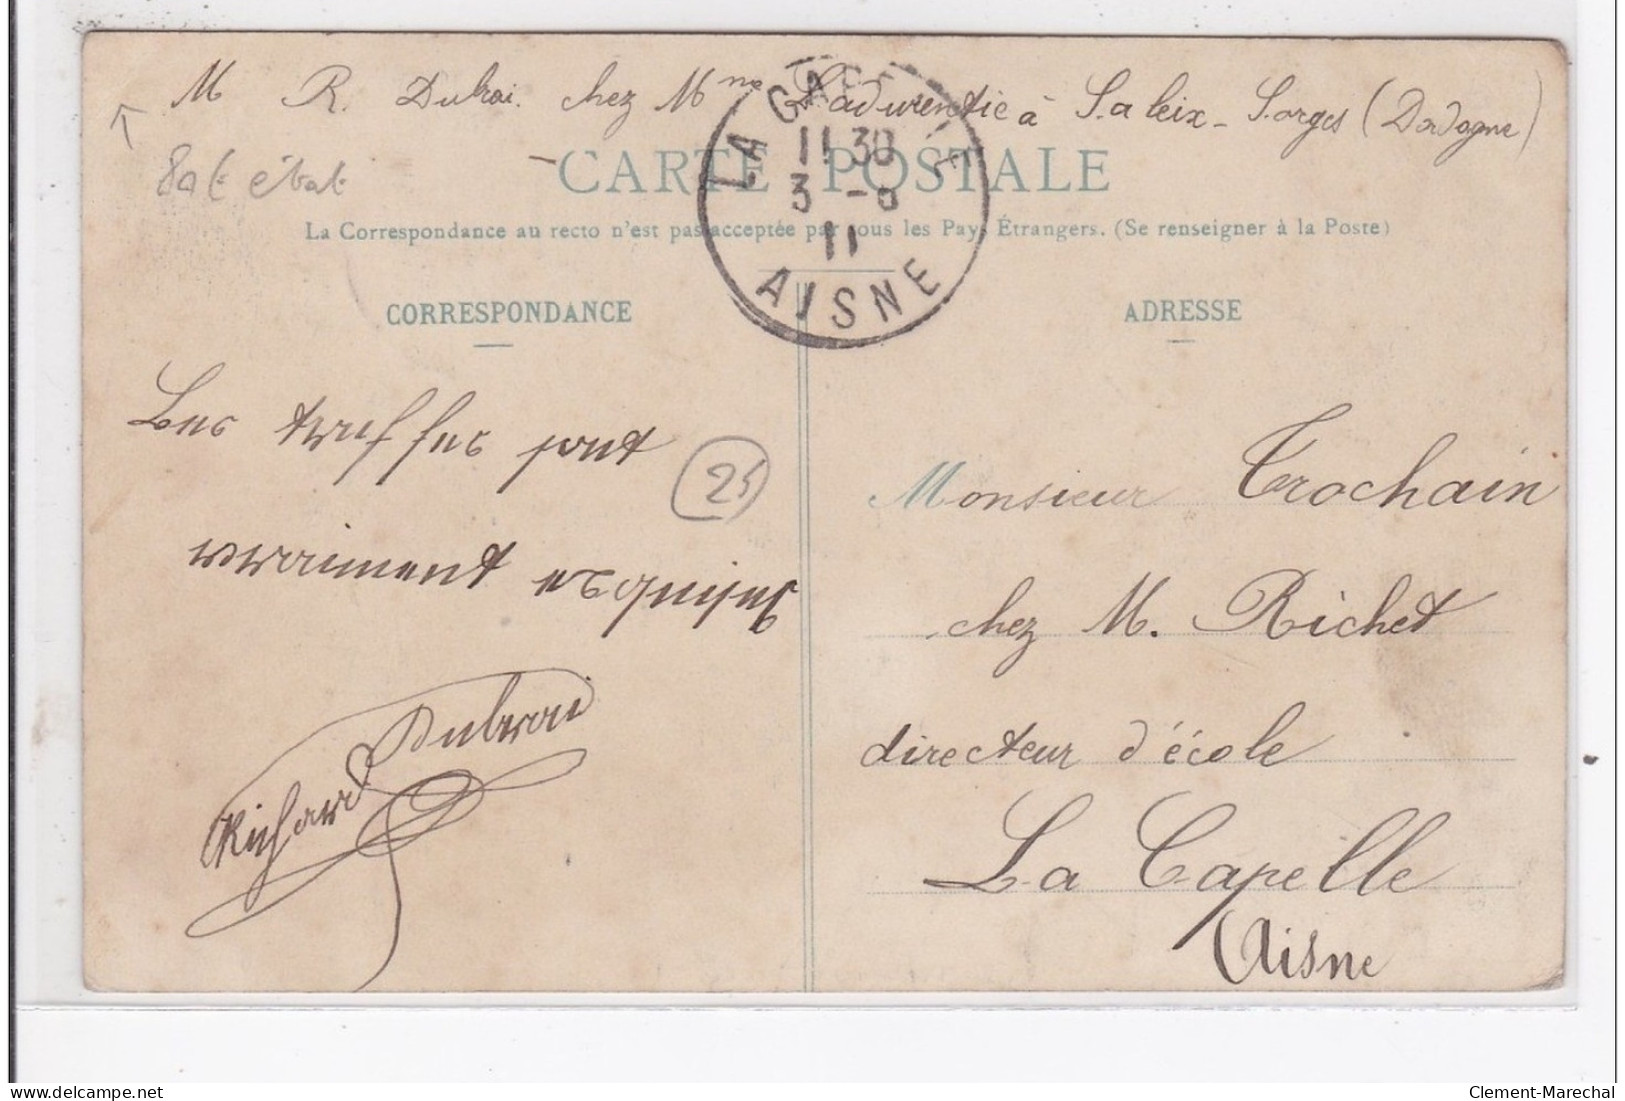 M R. Dubroi. chez Mme Ladurentie à Saleix - Sorges (Dordogne)
CARTE POSTALE
La Correspondance au recto n'est pas acceptée par tous les Pays Étrangers. (Se renseigner à la Poste)
LA CAPELLE
11 30
3 -8
11
AISNE
CORRESPONDANCE
ADRESSE
Les truffes sont
vraiment exquises
25
Richard Dubroi
Monsieur Trochain
chez M. Richet
directeur d'école
La Capelle
(Aisne
delcampe.net
Clement-Marechal